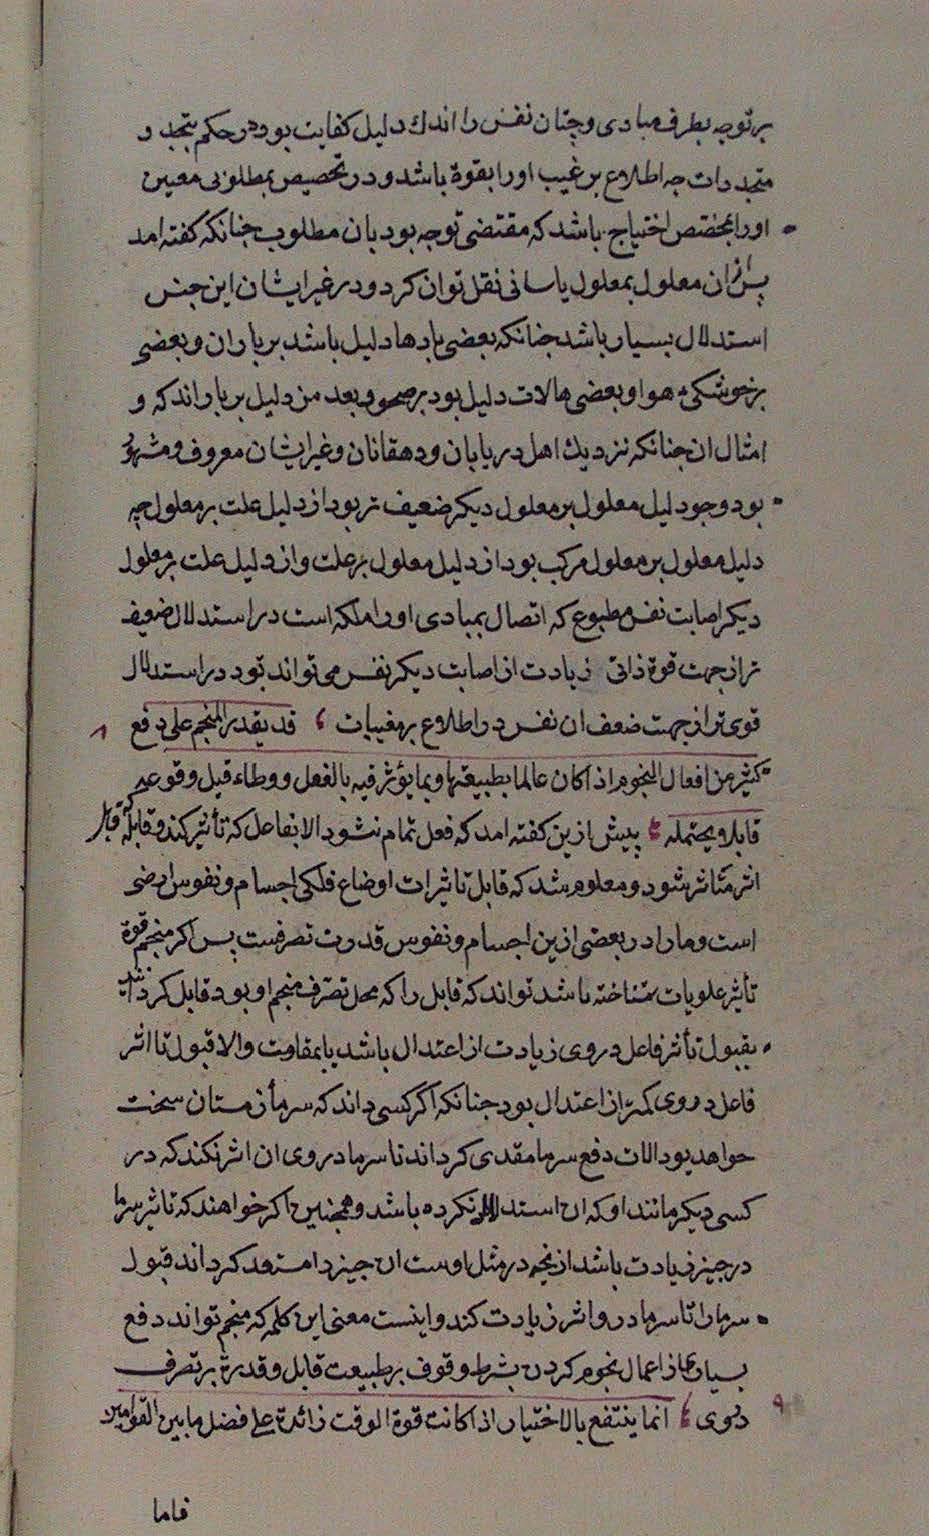 بر توجه بطرف مبادی و چنان نفس را اندك دلیل کفایت بود در حکم بتجدد و
متجددات چه اطلاع بر غیب اورا بقوة باشد و در تخصیص بمطلوبی معین
اورا بمخصص احتیاج باشد که مقتضی توجه بود بان مطلوب جنانکه کفته امد
پس ازان معلول بمعلول یاسانی نقل توان کرد و در غیر ایشان این جنس
استدلال بسیار باشد جنانکه بعضی بادها دلیل باشد بر باران و بعضی
بر خوشکی هوا و بعضی هالات دلیل بود بر صحو و بعد من دلیل بر باراندکه و
امثال ان جنانکه نزدیك اهل دریابان و دهقانان و غیر ایشان معروف و مشهور
بود وجود لیل معلول بر معلول دیکر ضعیف تر بود از دلیل علت بر معلول چه
دلیل معلول بر معلول مرکب بود از دلیل معلول بر علت و از دلیل علت بر معلول
دیکر اصابت نفس مطبوع که اتصال بمبادی اورا ملکه است در استدلال ضعیف
تر از جهت قوة ذاتی زیادت از اصابت دیکر نفس می تواند بود در استدلال
قوی تر از جهت ضعف ان نفس در اطلاع بر مغیبات قد یقدر المنجم علی دفع ۸
کثیر من افعال النجوم اذا کان عالما بطبیعتها و بما یؤثر فیه بالفعل و وطاء قبل وقوعه
قابلا یحتمله پیش ازین کفته امد که فعل تمام نشود الا بفاعل که تأثیر کند و قابلی که قابل
اثر متاثر شود و معلوم شد که قابل تاثیرات اوضاع فلکی اجسام و نفوس ارضی
است و مارا در بعضی ازین اجسام و نفوس قدرت تصرفست پس اکر منجم قوة
تأثیر علویات شناخته باشد تواند که قابل را که محل تصرف منجم او بود قابل کرداند
بقبول تأثر فاعل در وی زیادت از اعتدال باشد یا بمقاومت و الا قبول تا اثر
فاعل در وی کمتر از اعتدال بود جنانکه اکر کسی داند که سرماء زمستان سخت
خواهد بود الات دفع سرما مقدی کرداند تا سرما در وی ان اثر نکند که در
کسی دیکر مانند او که ان استدلال نکرده باشد و همجنین اکر خواهند که تاثیر سرما
در جیزی زیادت باشد از نجه در مثل اوست ان جیز را مستعد کرداند قبول
سرما را تا سرما درو اثر زیادت کند و اینست معنی این کلمه که منجم تواند دفع
بسیاری از اعمال نجوم کردن بشرط وقوف بر طبیعت قابل و قدرة بر تصرف
در وی انما ینتفع بالاختیار اذا کانت قوة الوقت زائدة علی فضل ما بین القوامین ۹
فاما